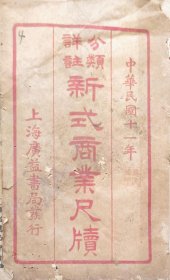 中華民國十一年
分類
詳註
新式商業尺牘
上海廣益書局發行